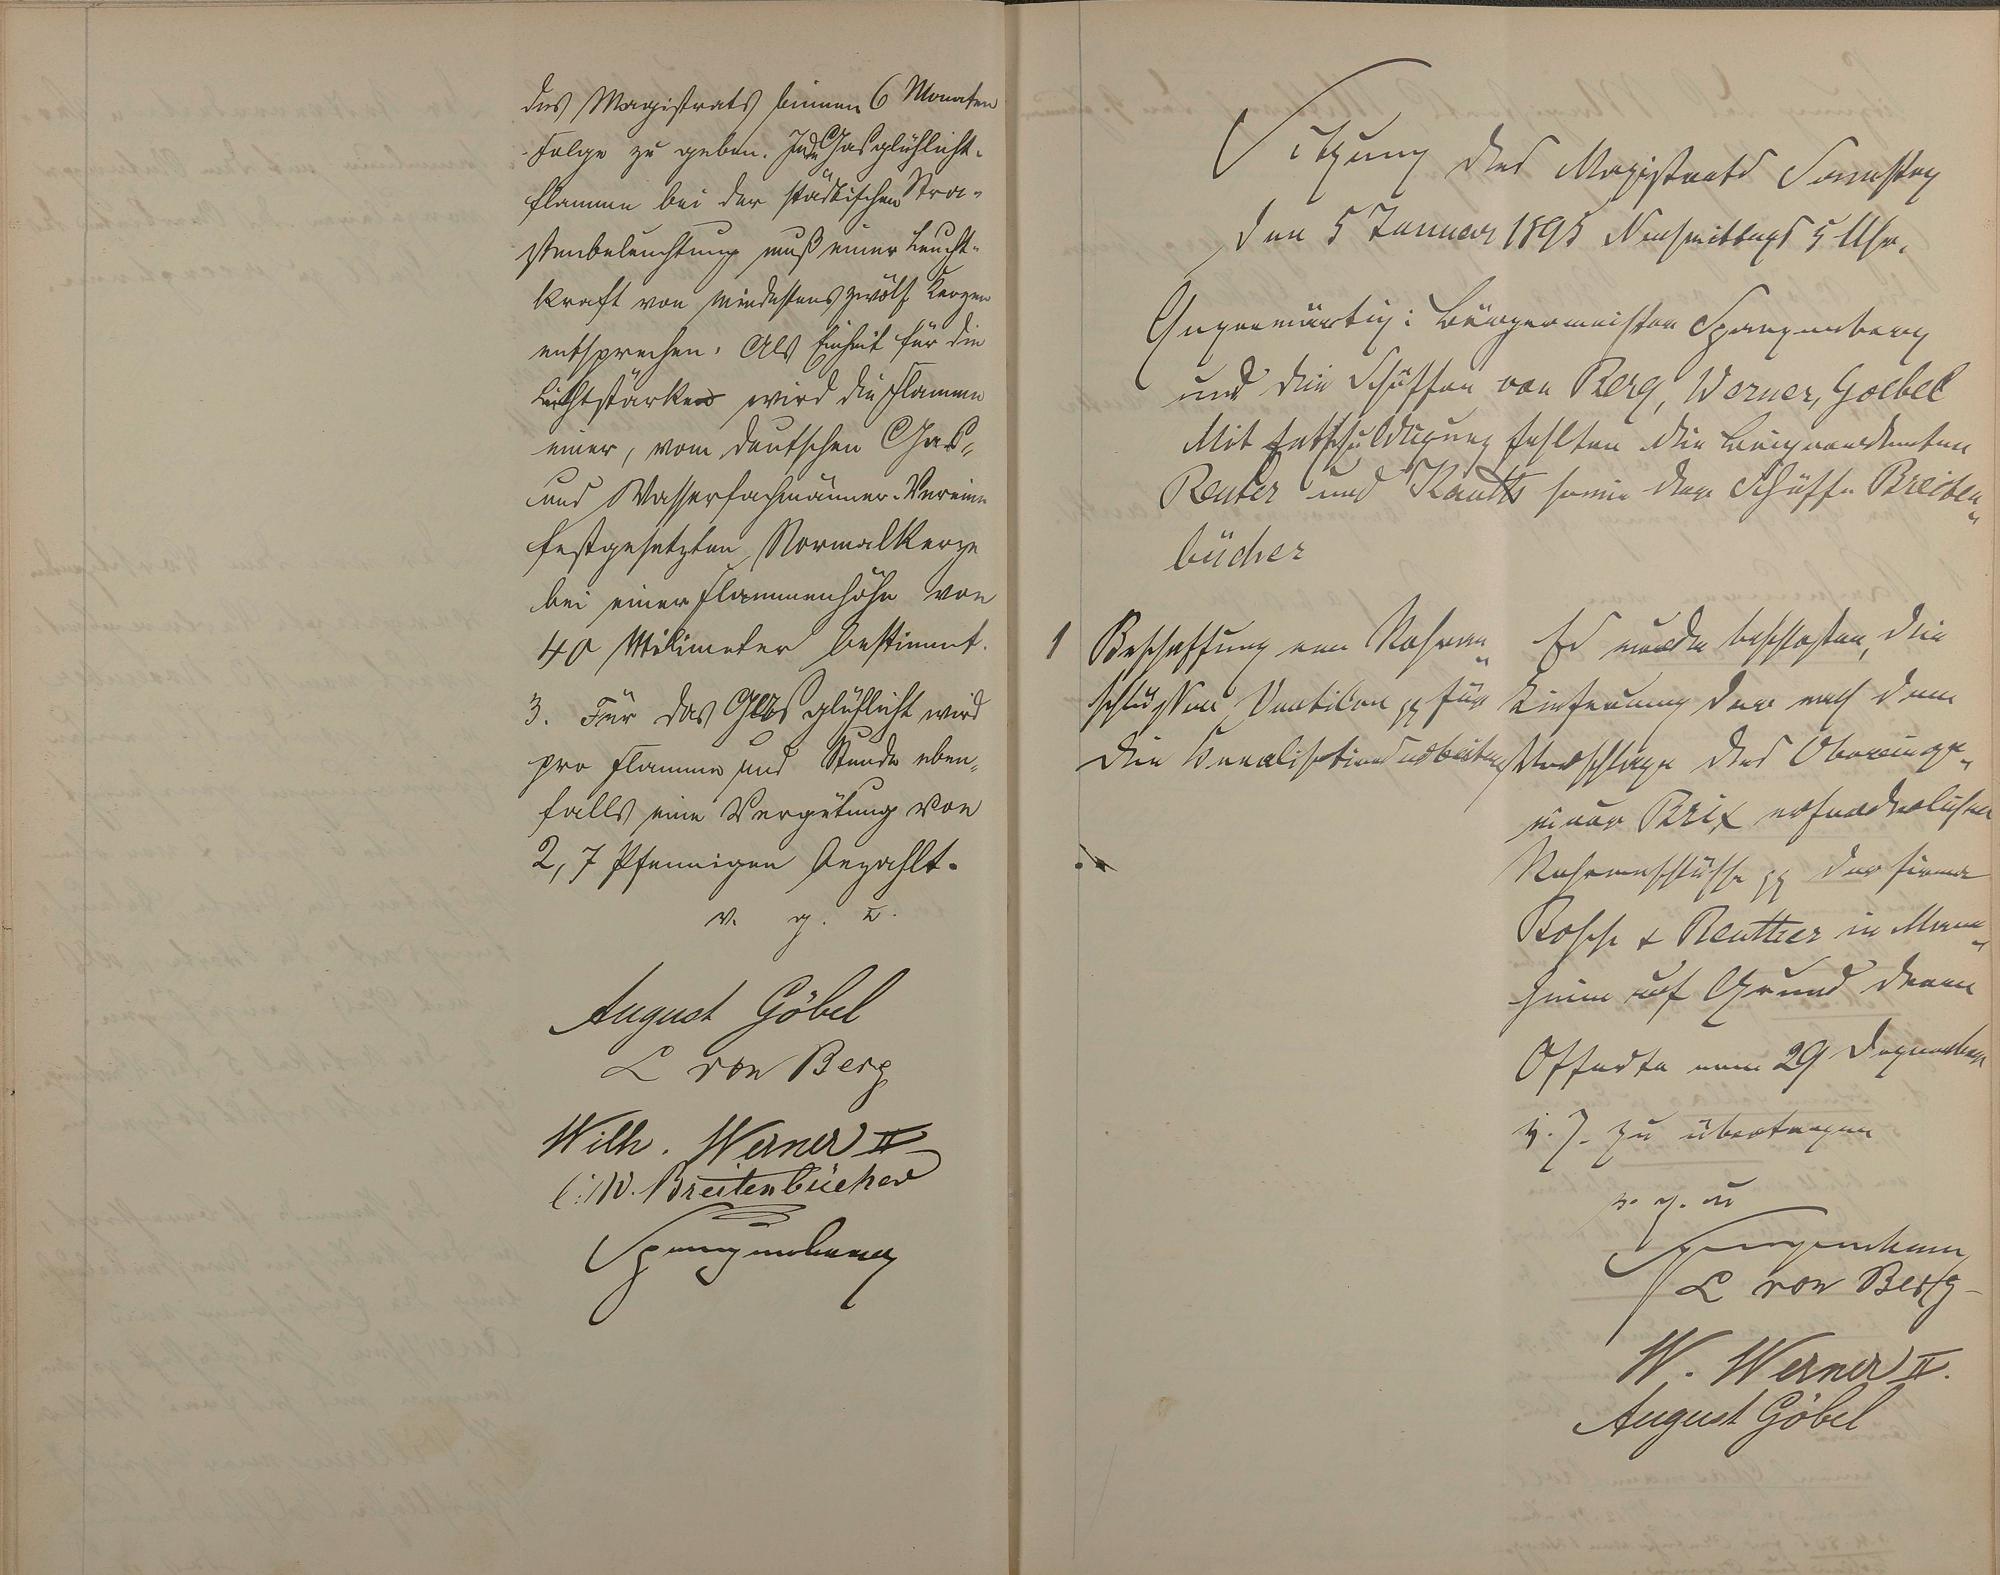 des Magistrats binnen 6 Monaten
Folge zu geben. Jede Gasglühlicht-
flamme bei der städtischen Stra-
ßenbeleuchtung muß einer Leucht-
kraft von mindestens zwölf Kerzen
entsprechen. Als Einheit für die
Lichtstärke wird die Flamme
einer, vom deutschen Gas-
und Wasserfachmänner-Vereine
festgesetzten Normalkerze
bei einer Flammenhöhe von
40 Milimeter bestimmt.
3. Für das Gasglühlicht wird
pro Flamme und Stunde eben-
falls eine Vergütung von
2,7 Pfennigen bezahlt.
v. g. u.
August Göbel
L von Berg
Wilh. Werner II
C. W. Breitenbücher
Spangenberg
Sitzung des Magistrats Samstag
den 5 Januar 1895 Nachmittags 5 Uhr.
Gegenwärtig: Bürgermeister Spangenberg
und die Schöffen von Berg, Werner, Goebel
Mit Entschuldigung fehlten die Beigeordneten
Reuter und Knutts sowie der Schöffe Breiten-
bücher
1 Beschaffung von Rohren-
schlüssen Ventilen pp für
die Kanalisationsarbeiten
Es wurde beschlossen, die
Lieferung der nach dem
Vorschlage des Oberinge-
nieur Brix erforderlichen
Rohrenschlüsse pp der Firma
Bosch & Reuther in Mann-
heim auf Grund deren
Offerte vom 29 Dezember
v. J. zu übertragen
v. g. u
Spangenberg
L von Berg
W. Werner II.
August Göbel